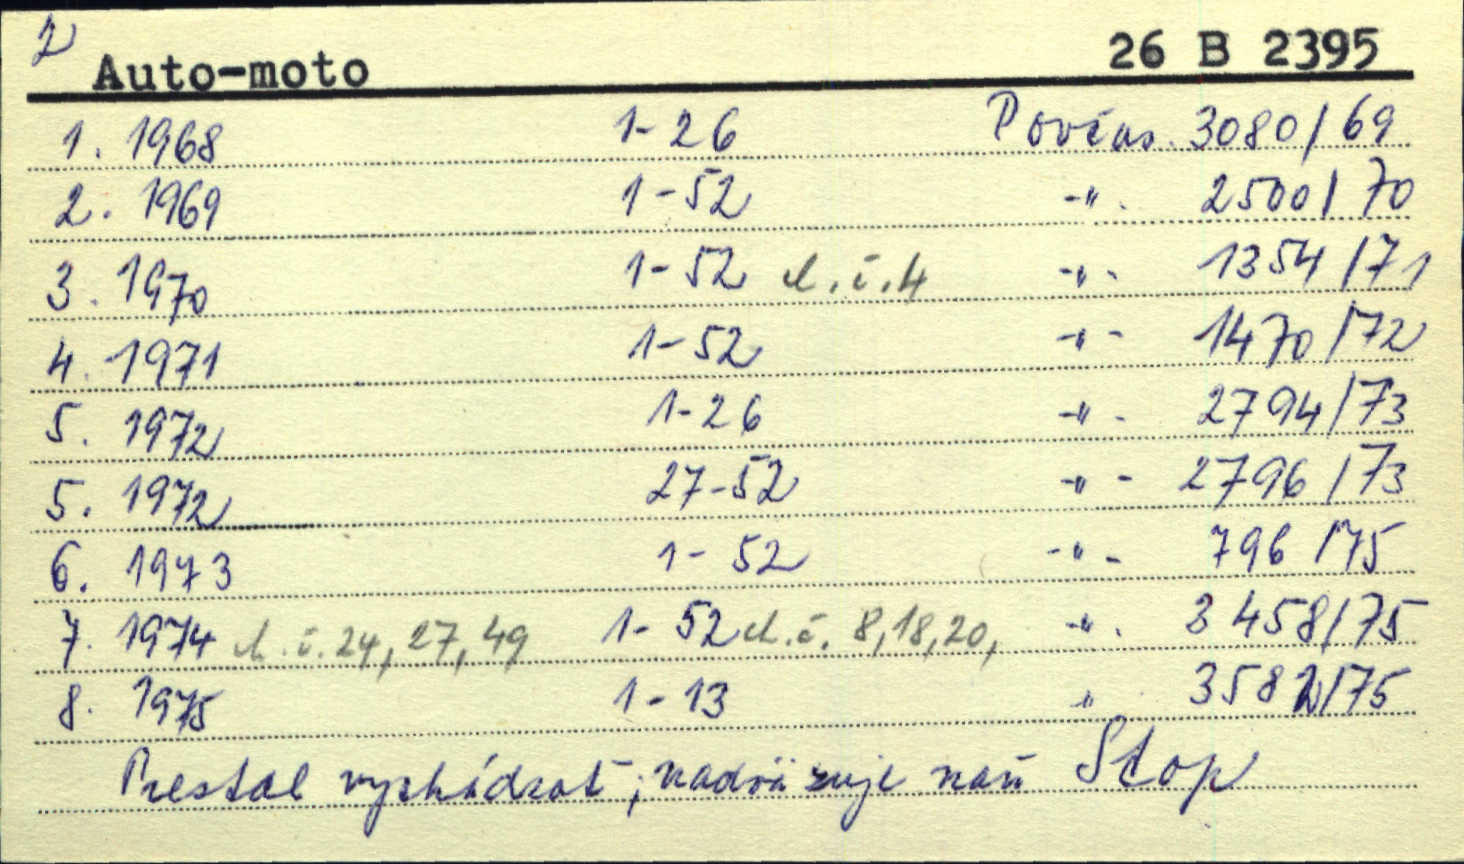 2
Auto-moto 26 B 2395
1. 1968 1-26 Povčas. 3080/69
2. 1969 1-52 -"- 2500/70
3. 1970 1-52 ch.č.4 -"- 1354/71
4. 1971 1-52 -"- 1470/72
5. 1972 1-26 -"- 2794/73
5. 1972 27-52 -"- 2796/73
6. 1973 1-52 -"- 796/75
7. 1974 ch.č.24,27,49 1-52 ch.č. 8,18,20, -"- 3458/75
8. 1975 1-13 " 3582/75
Prestal vychádzať; nadväzuje naň Stop